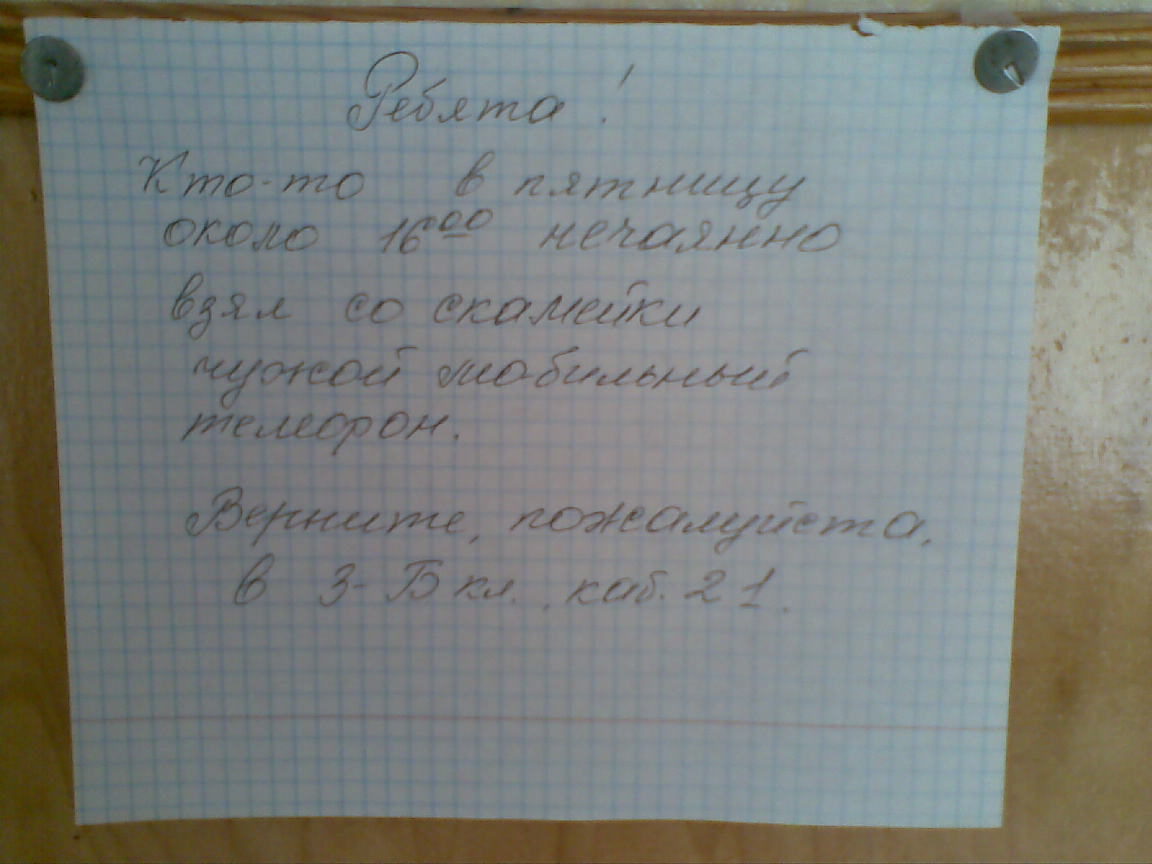 Ребята!
Кто-то в пятницу
около 16⁰⁰ нечаянно
взял со скамейки
чужой мобильный
телефон.
Верните, пожалуйста,
в 3-Б кл., каб. 21.